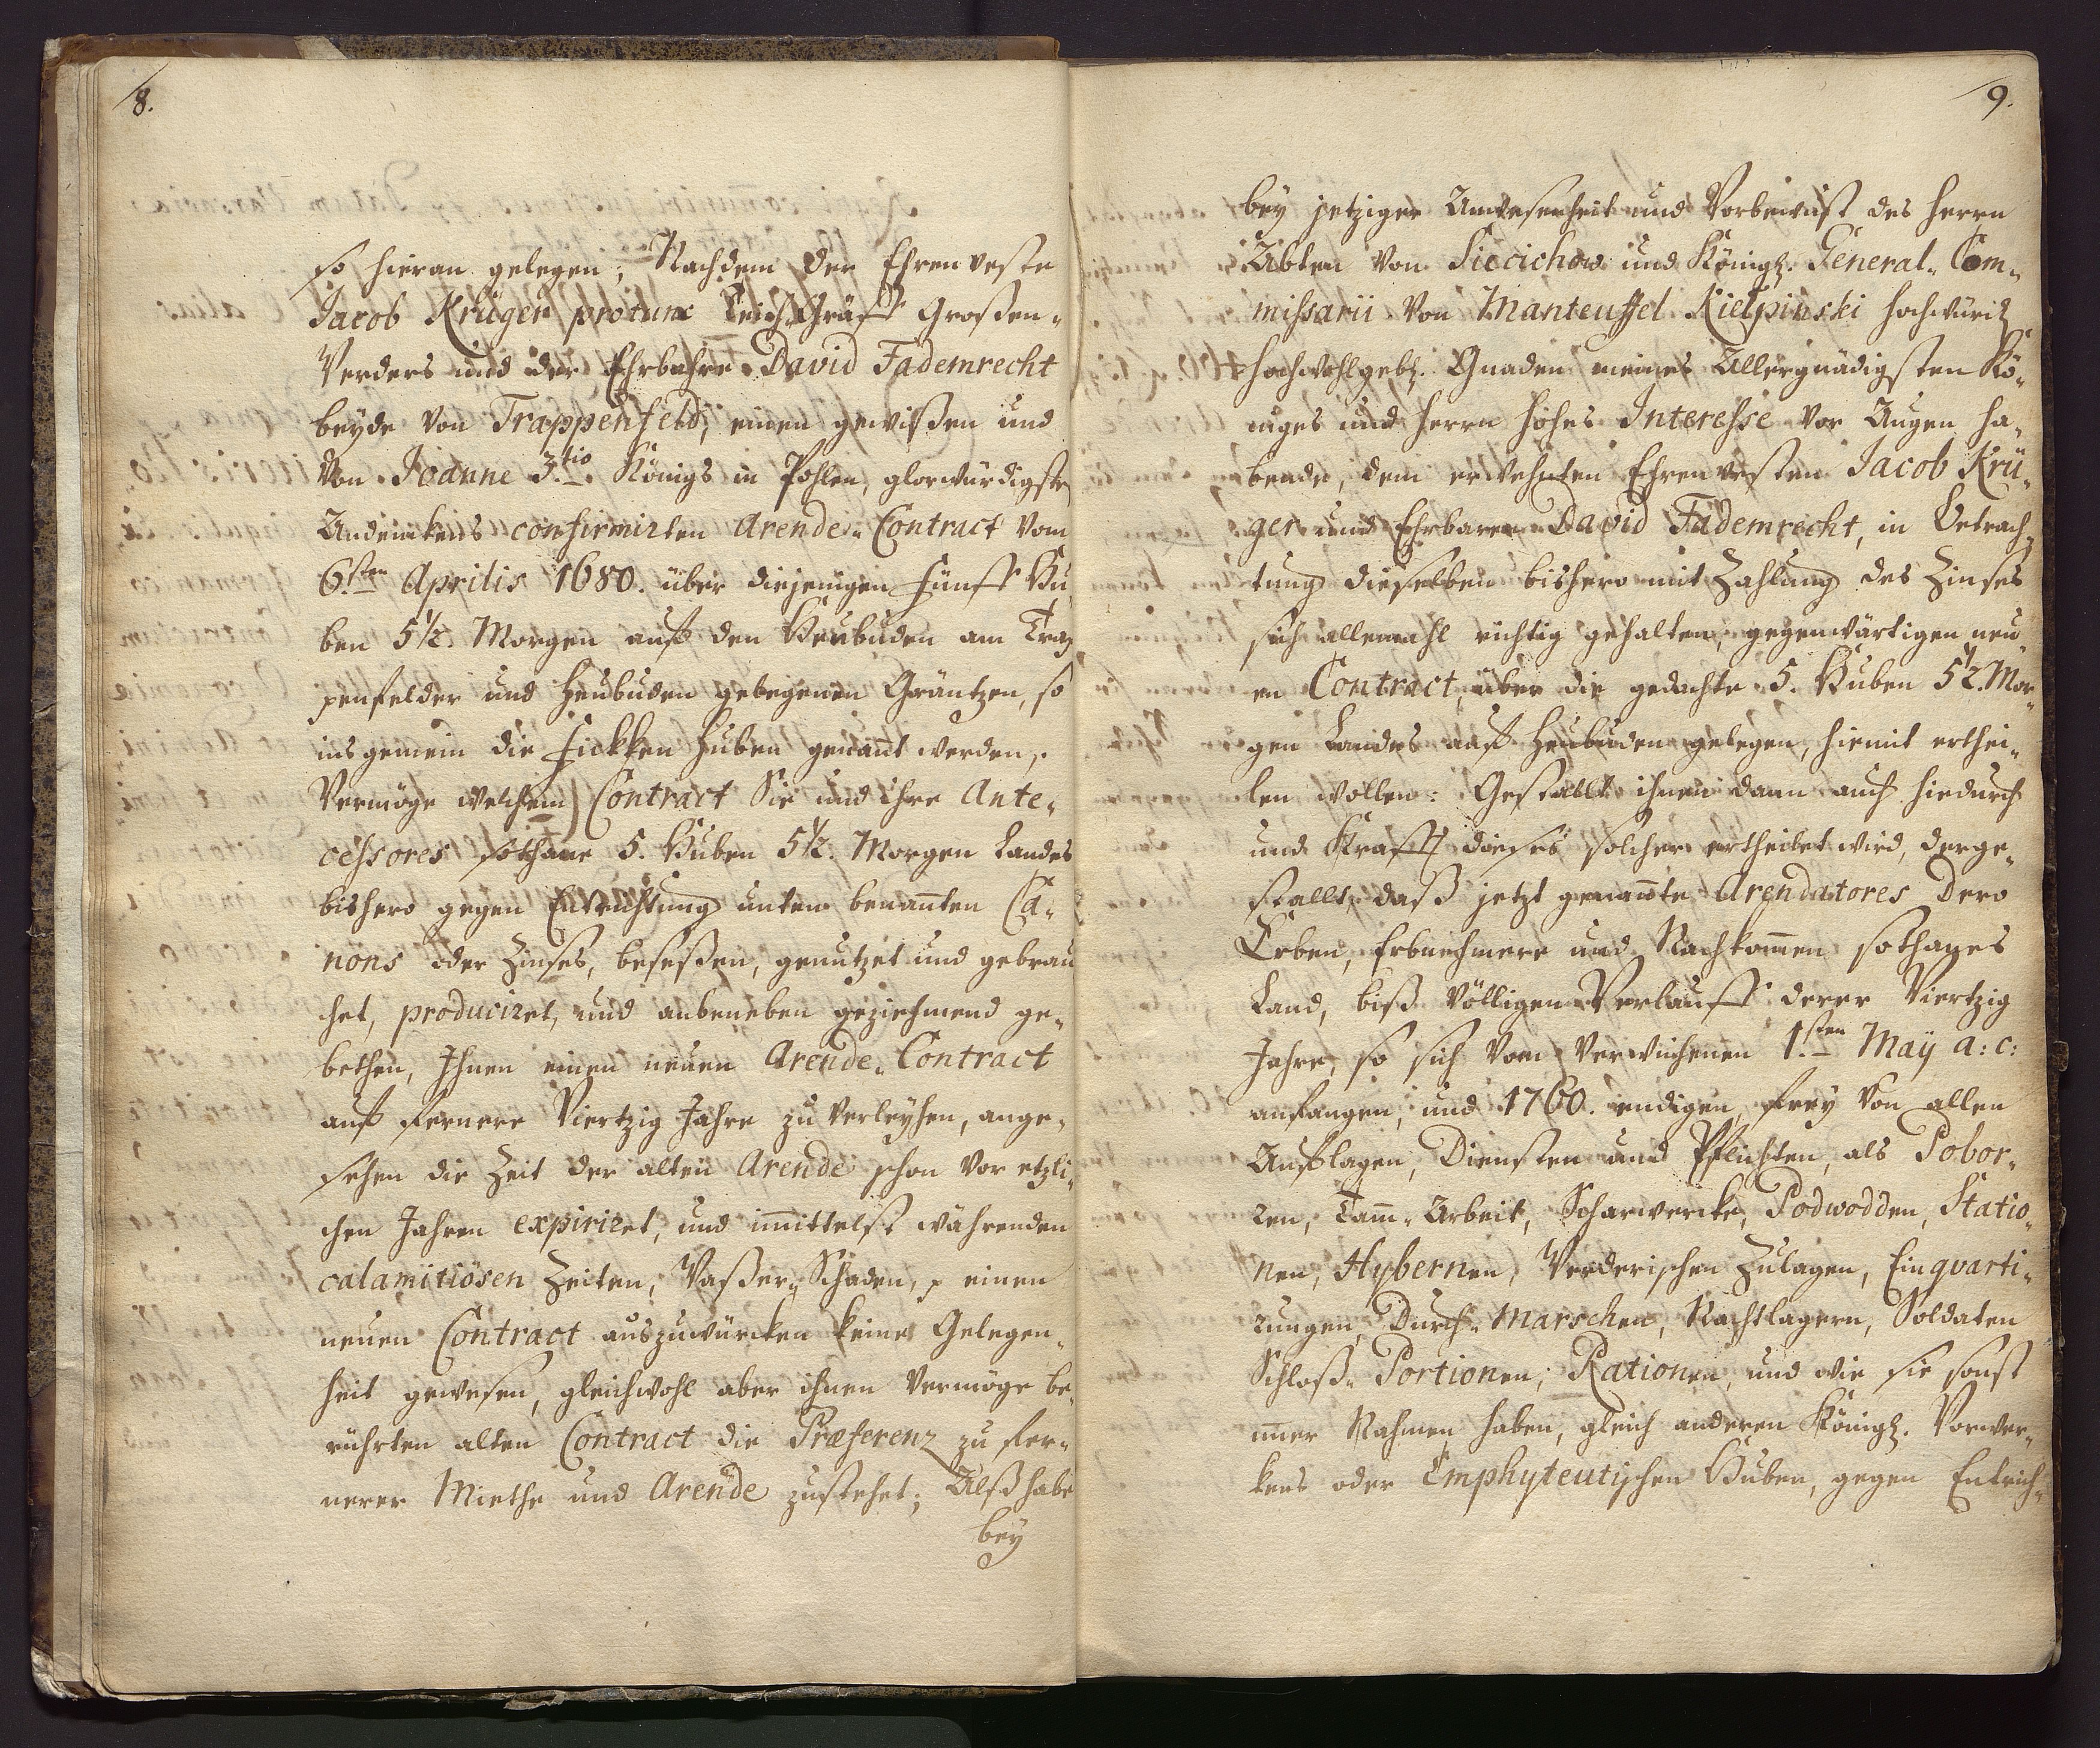 8.
so hieran gelegen; Nachdem der Ehrenveste
Jacob Krüger protunc Teich-Gräff Großen-
Werders und der Ehrbahre David Fademrecht
beyde von Trappenfeld, einen gewißen und
von Joanne 3.tio Königs in Pohlen, glorwürdigsten
Andenkens confirmirten Arende-Contract vom
6.ten Aprilis 1680. über diejenigen Fünff Hu-
ben 5½ Morgen auff den Heubuden am Trap-
penfelder und Heubuden gelegenen Gräntzen, so
ins gemein die Fickken Huben genannt werden,
Vermöge welchem Contract Sie und ihre Ante-
cessores sothane 5. Huben 5½. Morgen Landes
bishero gegen Entrichtung unten benannten Ca-
nons oder Zinses, beseßen, genutzet und gebrau-
chet, produciret, und anbeneben geziehmend ge-
bethen, Ihnen einen neuen Arende-Contract
auff fernere Viertzig Jahre zu verleyhen, ange-
sehen die Zeit der alten Arende schon vor etzli-
chen Jahren expiriret, und immittelst währenden
calamitiösen Zeiten, Waßer-Schaden, einen
neuen Contract auszuwürcken keine Gelegen-
heit gewesen, gleichwohl aber ihnen vermöge be-
rührten alten Contract die Præferenz zu fer-
nerer Miethe und Arende zustehet; Alß habe
bey
9.
bey jetziger Anwesenheit und Vorbewust des Herrn
Abten von Sieciechow und Königl. General-Com-
missarii von Manteuffel Kielpinski Hochwürd.
Hochwohlgebl. Gnaden meines Allergnädigsten Kö-
niges und Herrn hohes Interesse vor Augen ha-
bende, dem erwehnten Ehrenvesten Jacob Krü-
ger und Ehrbaren David Fademrecht, in Betrach-
tung dieselben bishero mit Zahlung des Zinses
sich allemahl richtig gehalten, gegenwärtigen neu-
en Contract, über die gedachte 5. Huben 5½. Mor-
gen Landes auff Heubuden gelegen, hiemit erthei-
len wollen: Gestallt ihnen dann auch hiedurch
und Krafft dieses solcher ertheilet wird, derge-
stallt, daß jetzt genannte Arendatores dero
Erben, Erbnehmere und Nachkommen sothanes
Land, biß völligen Verlauff derer Viertzig
Jahre, so sich vom verwichenen 1.sten Maÿ a: c:
anfangen, und 1760. endigen, frey von allen
Aufflagen, Diensten und Pflichten, als Pobor-
ren, Damm-Arbeit, Scharwercke, Podwodden, Statio-
nen, Hybernen, Werderischen Zulagen, Einqvarti-
rungen, Durch-Marschen, Nachtlagern, Soldaten
Schloß-Portionen, Rationen, und wie sie sonst
immer Nahmen haben, gleich anderen Königl. Vorwer-
kens oder Emphyteutischen Huben, gegen Entrich-